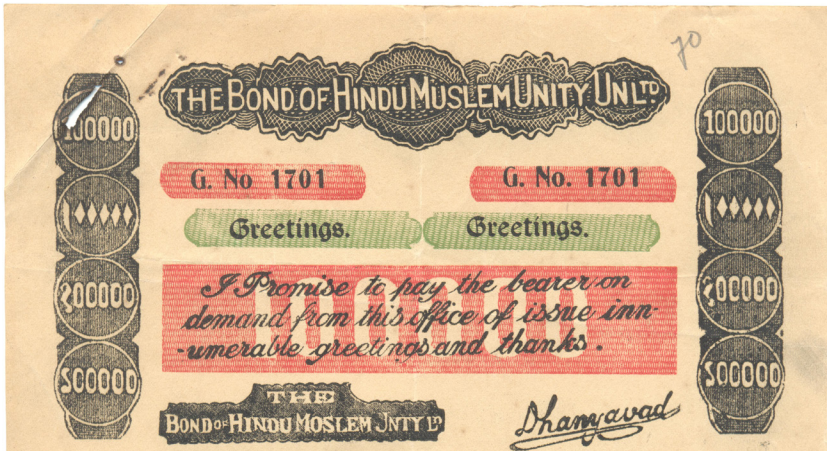 70
THE BOND OF HINDU MUSLEM UNITY UNLTD.
100000
100000
G. No 1701
G. No. 1701
۱۰۰۰۰۰
۱۰۰۰۰۰
Greetings.
Greetings.
I Promise to pay the bearer on
demand from this office of issue inn-
-umerable greetings and thanks.
100000
१०००००
१०००००
THE
BOND OF HINDU MOSLEM UNTY LD
Dhanyavad